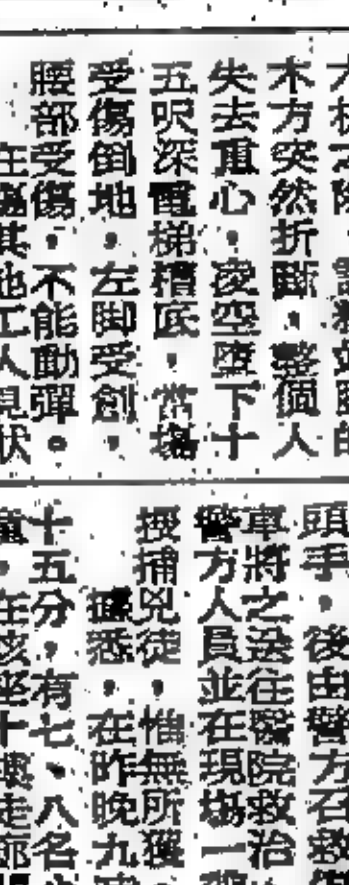 木方突然折斷，整個人
失去重心，凌空墮下十
五呎深電梯槽底，當場
受傷倒地，左脚受創，
腰部受傷，不能動彈。
在場其他工人見狀
頭手，後由警方召救
車將之送往醫院救治
警方人員並在現場一
搜捕兇徒，惟無所獲
據悉，在昨晚九
十五分，有七、八名
在該座十樓走廊